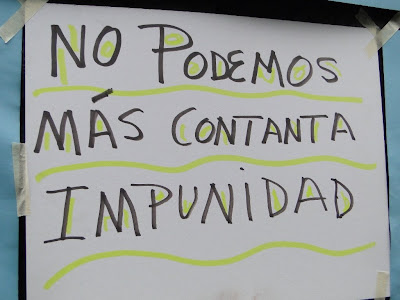 NO PODEMOS
MÁS CONTANTA
IMPUNIDAD